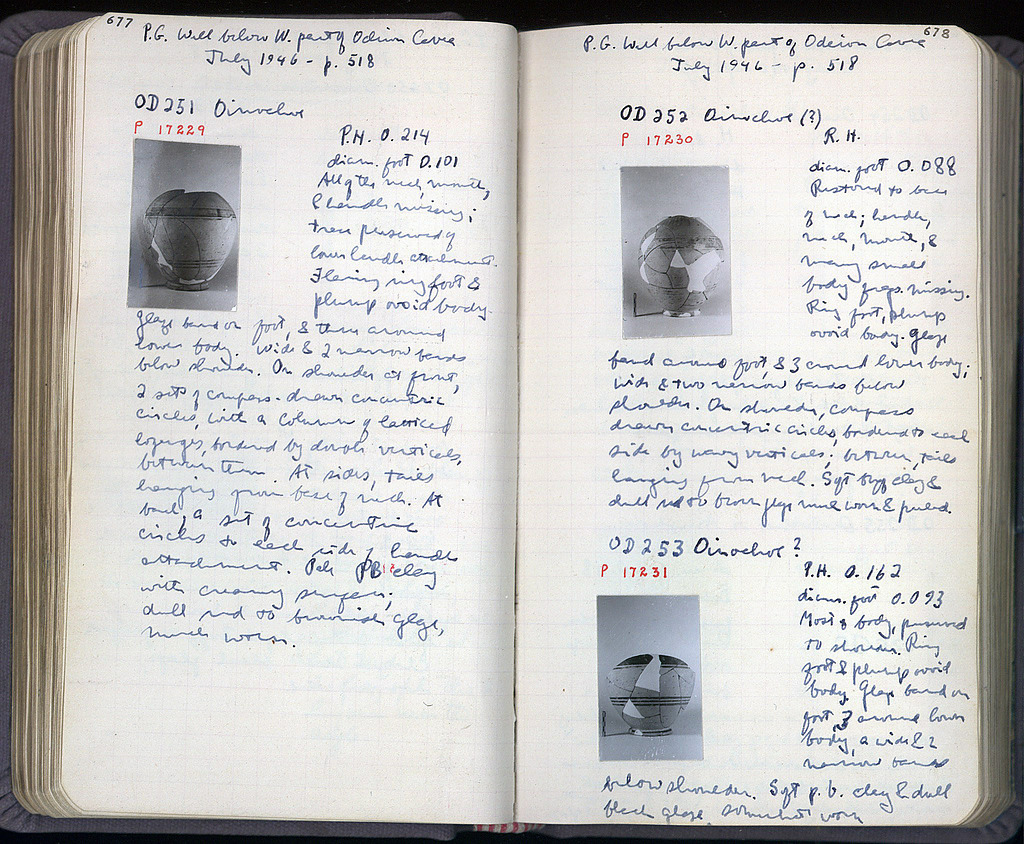 677
P.G. Well below W. part of Odeion Cavea
July 1946 - p. 518
OD 251 Oinochoe
P 17229
P.H. 0.214
diam. foot 0.101
All of the neck, mouth,
& handle missing;
trace preserved of
lower handle attachment.
Flaring ring foot &
plump ovoid body.
Glaze band on foot, & three around
lower body. Wide & 2 narrow bands
below shoulder. On shoulder at front,
2 sets of compass-drawn concentric
circles, with a column of latticed
lozenges, bordered by double verticals,
between them. At sides, tails
hanging from base of neck. At
back, a set of concentric
circles to each side of handle
attachment. Pale PB clay
with creamy surface;
dull red to brownish glaze,
much worn.
678
P.G. Well below W. part of Odeion Cavea
July 1946 - p. 518
OD 252 Oinochoe (?)
P 17230
R.H.
diam. foot 0.088
Restored to base
of neck; handle,
neck, mouth, &
many small
body frags. missing.
Ring foot, plump
ovoid body. Glaze
band around foot, & 3 around lower body;
wide & two narrow bands below
shoulder. On shoulder, compass
drawn concentric circles, bordered to each
side by wavy verticals; between, tails
hanging from neck. Soft buff clay &
dull red to brown glaze much worn & peeled.
OD 253 Oinochoe ?
P 17231
P.H. 0.162
diam. foot 0.093
Most of body, preserved
to shoulder. Ring
foot & plump ovoid
body. Glaze band on
foot, 3 around lower
body, a wide & 2
narrow bands
below shoulder. Soft p.b. clay & dull
black glaze somewhat worn